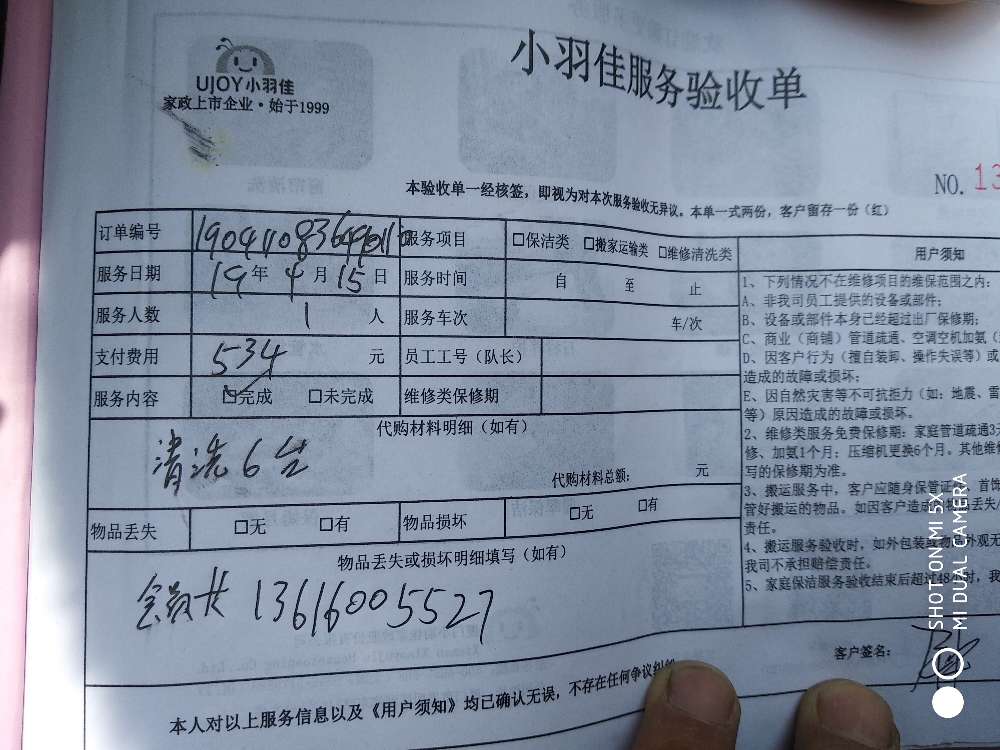 UJOY小羽佳
家政上市企业·始于1999
小羽佳服务验收单
NO. 13
本验收单一经核签，即视为对本次服务验收无异议。本单一式两份，客户留存一份（红）
订单编号
服务项目 □保洁类 □搬家运输类 □维修清洗类
服务日期 19 年 4 月 15 日
服务时间 自 至 止
服务人数 1 人
服务车次 车/次
支付费用 534 元
员工工号（队长）
服务内容 ☑完成 □未完成
维修类保修期
代购材料明细（如有）
清洗6台
代购材料总额： 元
物品丢失 □无 □有
物品损坏 □无 □有
物品丢失或损坏明细填写（如有）
13616005527
用户须知
1、下列情况不在维修项目的维保范围之内：
A、非我司员工提供的设备或部件；
B、设备或部件本身已经超过出厂保修期；
C、商业（商铺）管道疏通、空调空机加氨（
D、因客户行为（擅自装卸、操作失误等）或
造成的故障或损坏；
E、因自然灾害等不可抗拒力（如：地震、雷
等）原因造成的故障或损坏。
2、维修类服务免费保修期：家庭管道疏通3
修、加氨1个月；压缩机更换6个月。其他维
写的保修期为准。
3、搬运服务中，客户应随身保管证 首饰
管好搬运的物品。如因客户造成 物品丢失
责任。
4、搬运服务验收时，如外包装或物品外观无
我司不承担赔偿责任。
5、家庭保洁服务验收结束后超过48小时，我
客户签名：
本人对以上服务信息以及《用户须知》均已确认无误，不存在任何争议纠纷
SHOT ON MI 5X
MI DUAL CAMERA